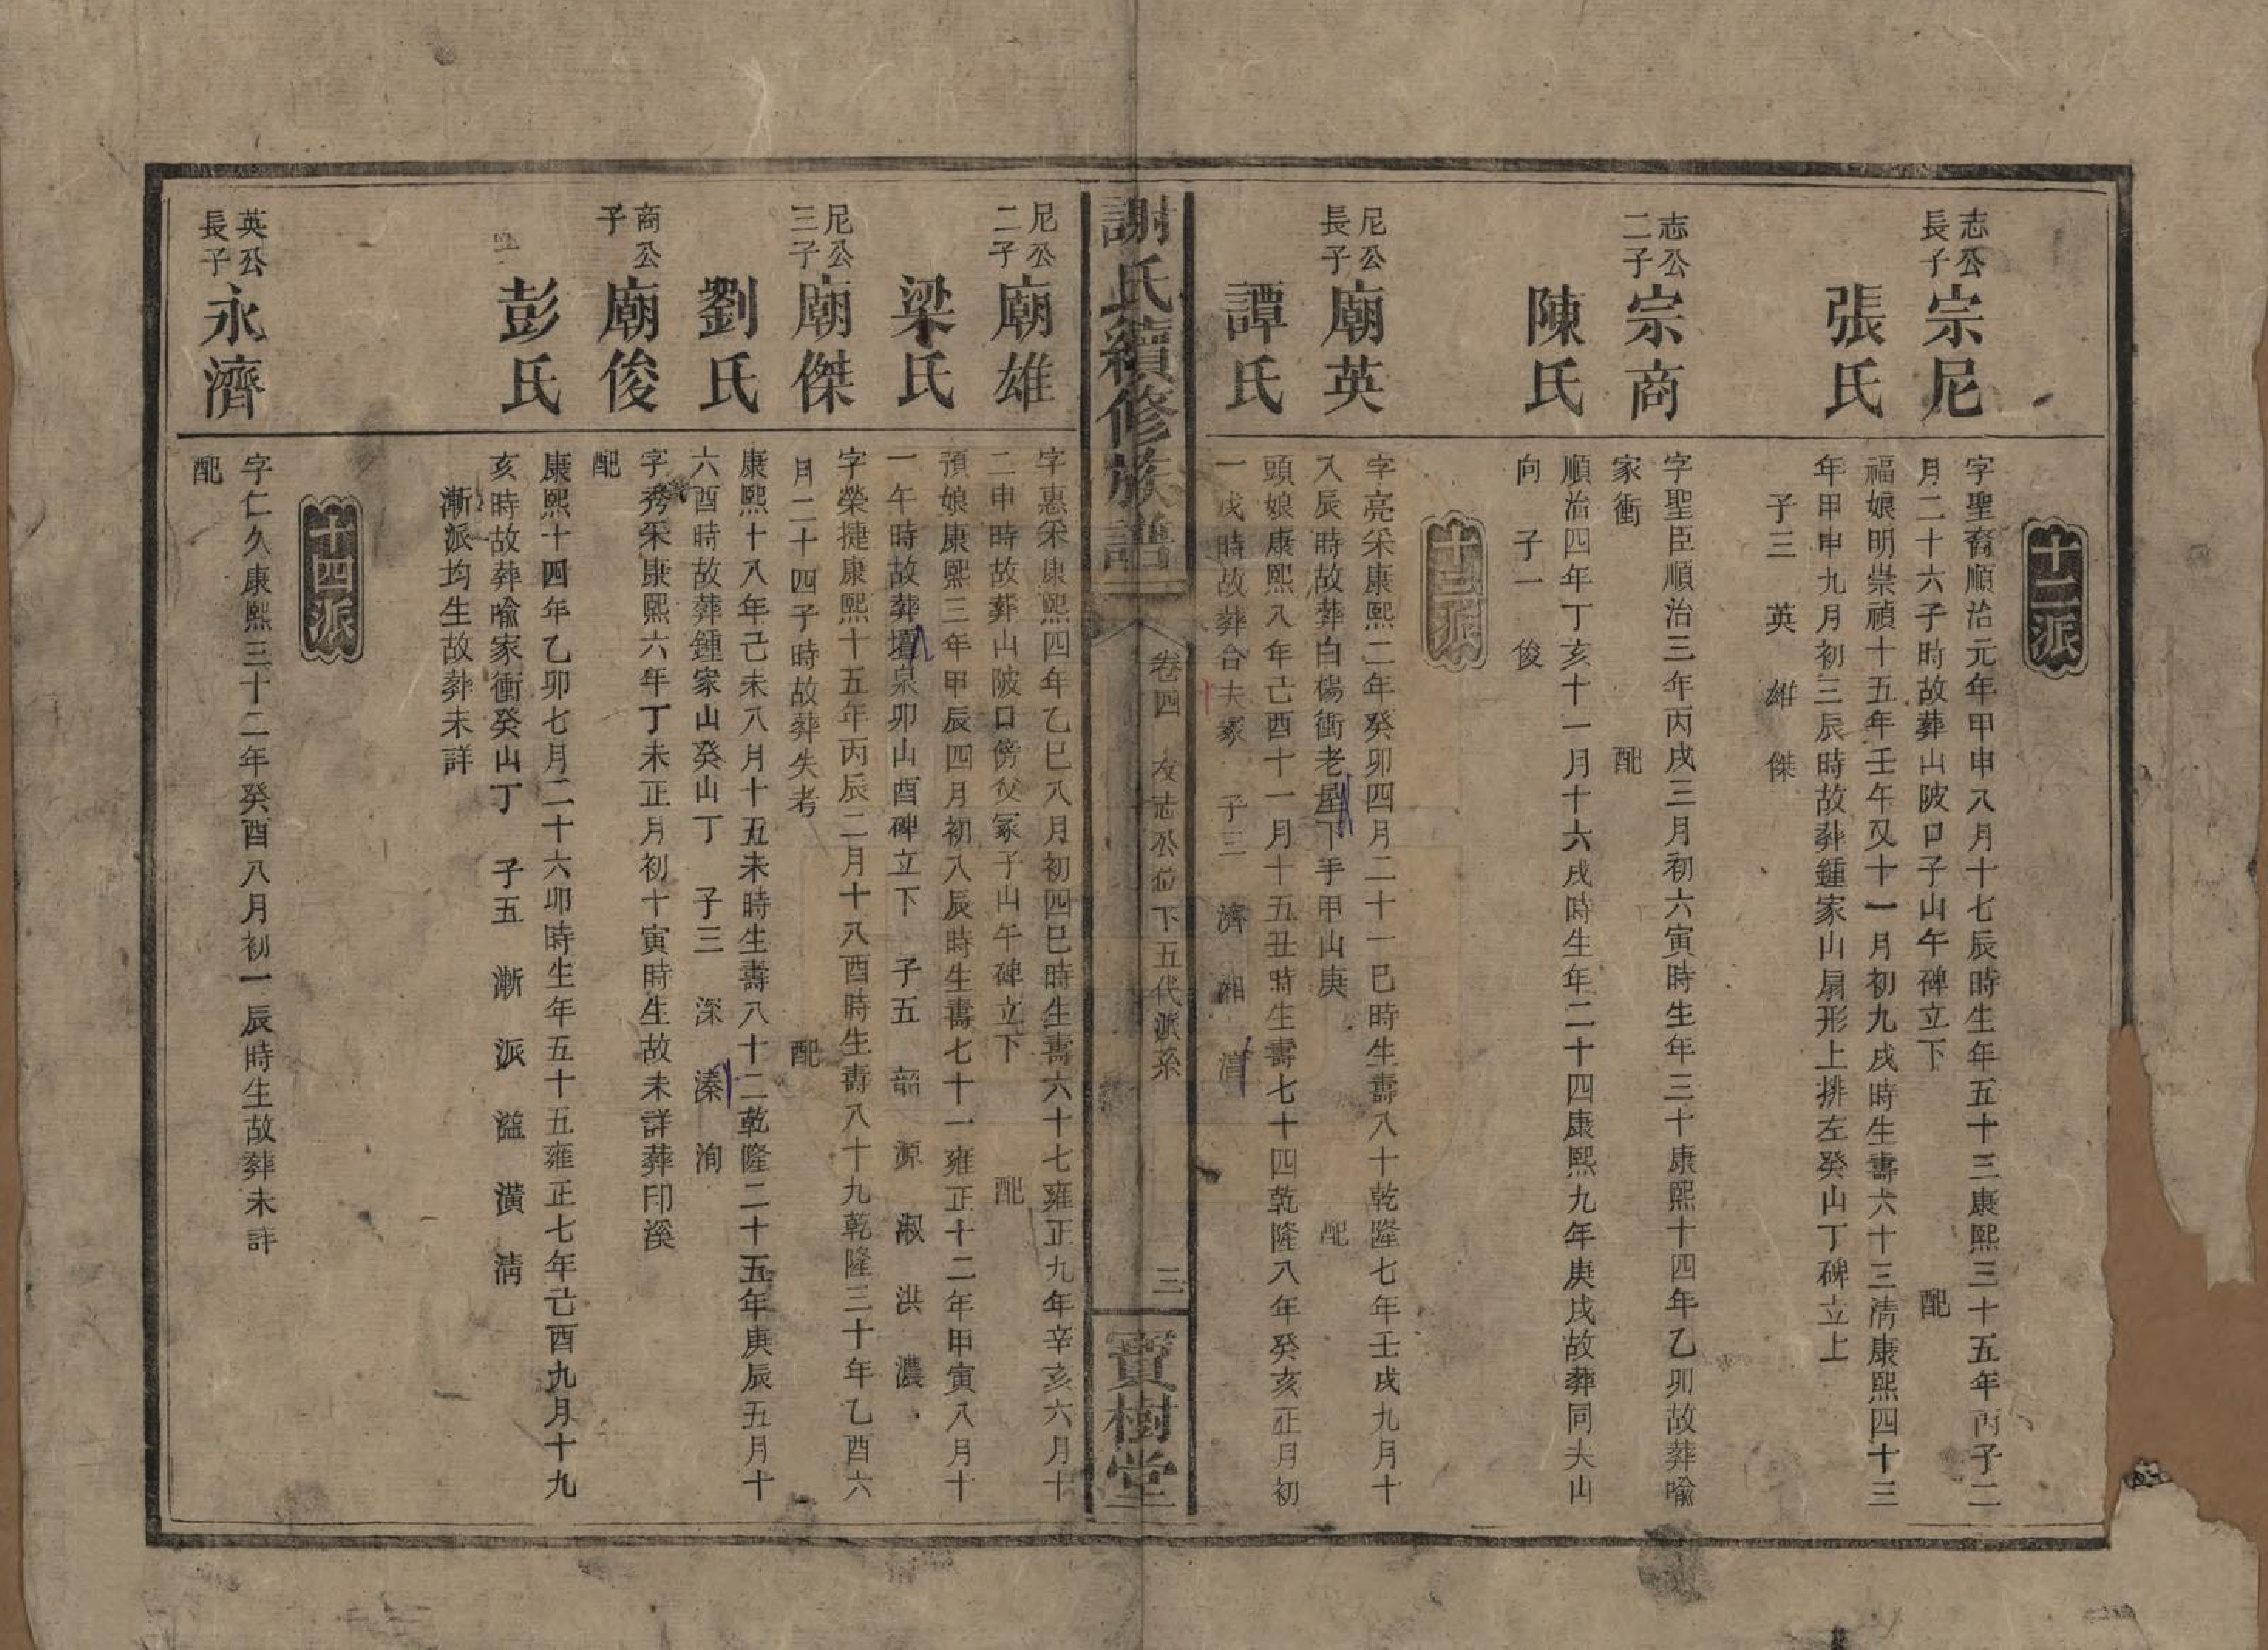 十二派
志公
長子
宗尼
字聖裔順治元年甲申八月十七辰時生年五十三康熙三十五年丙子二
月二十六子時故葬山陂口子山午碑立下 配
張氏
福娘明崇禎十五年壬午又十一月初九戌時生壽六十三清康熙四十三
年甲申九月初三辰時故葬鍾家山扇形上排左癸山丁碑立上
子三 英 雄 傑
志公
二子
宗商
字聖臣順治三年丙戌三月初六寅時生年三十康熙十四年乙卯故葬喻
家衝 配
陳氏
順治四年丁亥十一月十六戌時生年二十四康熙九年庚戌故葬同夫山
向 子一 俊
十三派
尼公
長子
廟英
字亮采康熙二年癸卯四月二十一巳時生壽八十乾隆七年壬戌九月十
八辰時故葬白楊衝老屋下手甲山庚 配
譚氏
頭娘康熙八年己酉十一月十五丑時生壽七十四乾隆八年癸亥正月初
一戌時故葬合夫冢 子三 濟 湘 清
謝氏續修族譜
卷四 友志公位下五代派系
三
寶樹堂
尼公
二子
廟雄
字惠采康熙四年乙巳八月初四巳時生壽六十七雍正九年辛亥六月十
二申時故葬山陂口傍父冢子山午碑立下 配
梁氏
預娘康熙三年甲辰四月初八辰時生壽七十一雍正十二年甲寅八月十
一午時故葬壜泉卯山酉碑立下 子五 韶 源 淑 洪 濃
尼公
三子
廟傑
字榮捷康熙十五年丙辰二月十八酉時生壽八十九乾隆三十年乙酉六
月二十四子時故葬失考 配
劉氏
康熙十八年己未八月十五未時生壽八十二乾隆二十五年庚辰五月十
六酉時故葬鍾家山癸山丁 子三 深 溱 洵
商公
子
廟俊
字秀采康熙六年丁未正月初十寅時生故未詳葬印溪
配
彭氏
康熙十四年乙卯七月二十六卯時生年五十五雍正七年己酉九月十九
亥時故葬喻家衝癸山丁 子五 漸 派 謚 潢 清
漸派均生故葬未詳
十四派
英公
長子
永濟
字仁久康熙三十二年癸酉八月初一辰時生故葬未詳
配